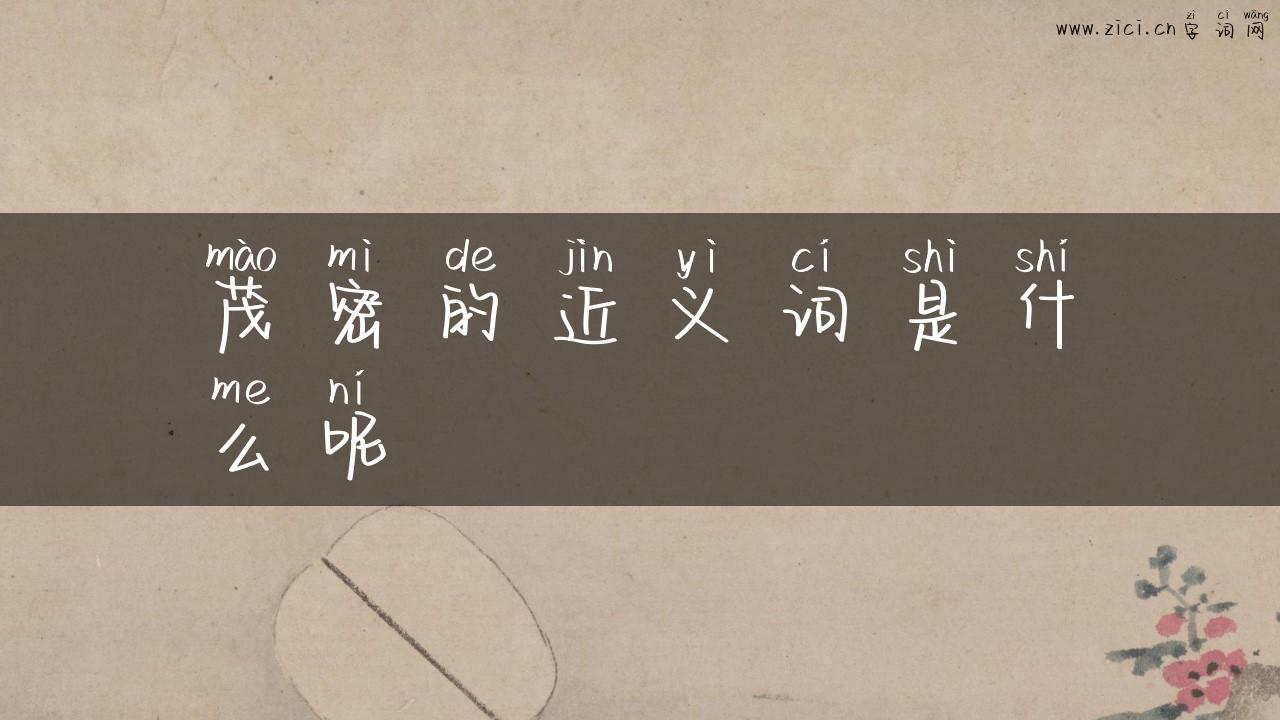 zì cí wǎng
www.zici.cn 字 词 网
mào mì de jìn yì cí shì shí
茂 密 的 近 义 词 是 什
me ní
么 呢